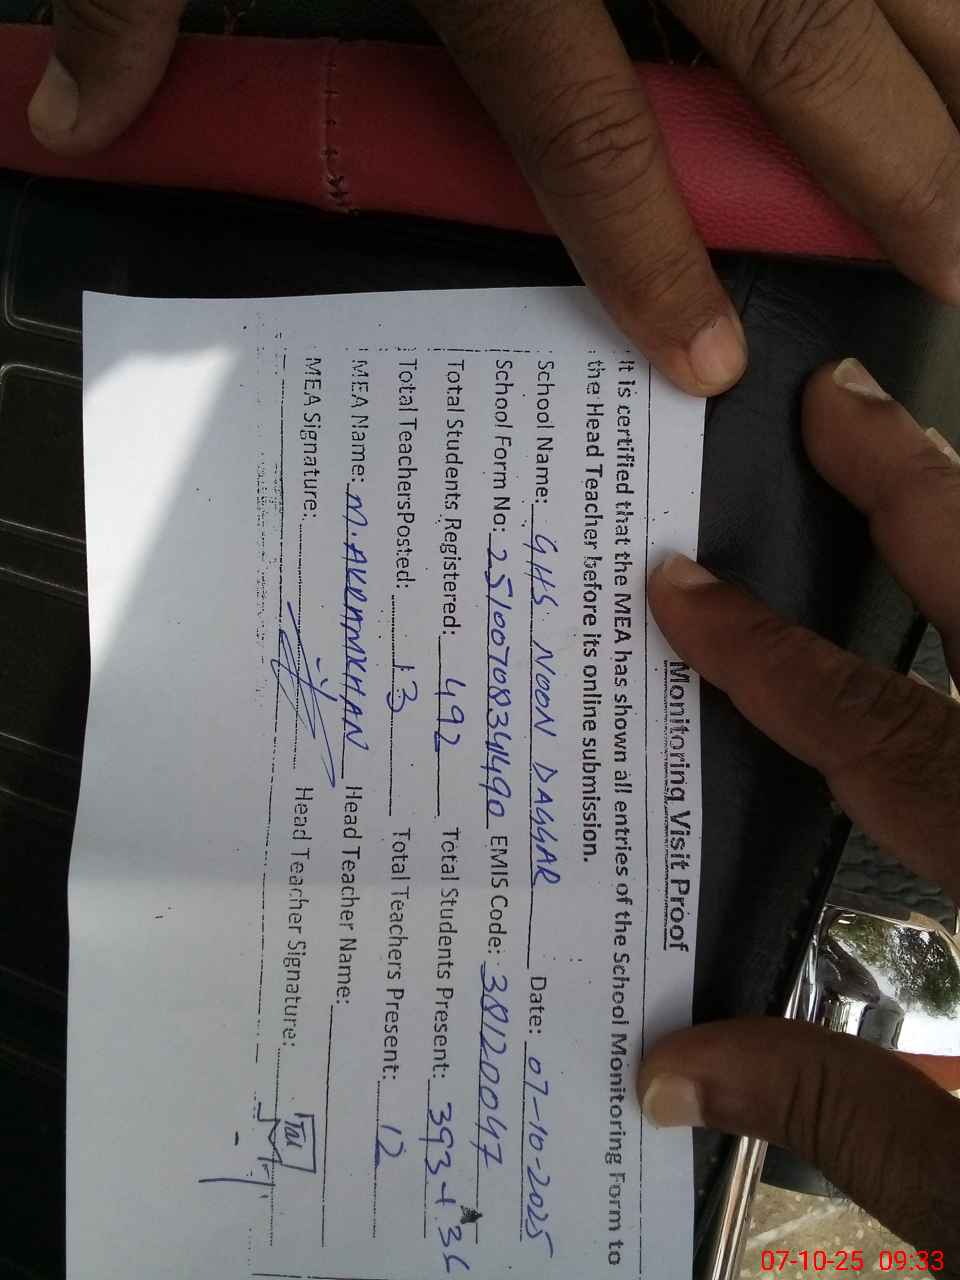 Monitoring Visit Proof
It is certified that the MEA has shown all entries of the School Monitoring Form to
the Head Teacher before its online submission.
School Name: GHS NOON DAGGAR Date: 07-10-2025
School Form No: 25100708341490 EMIS Code: 38120047
Total Students Registered: 492 Total Students Present: 393+36
Total TeachersPosted: 13 Total Teachers Present: 12
MEA Name: M.AKRAMKHAN Head Teacher Name:
MEA Signature: Head Teacher Signature:
07-10-25 09:33